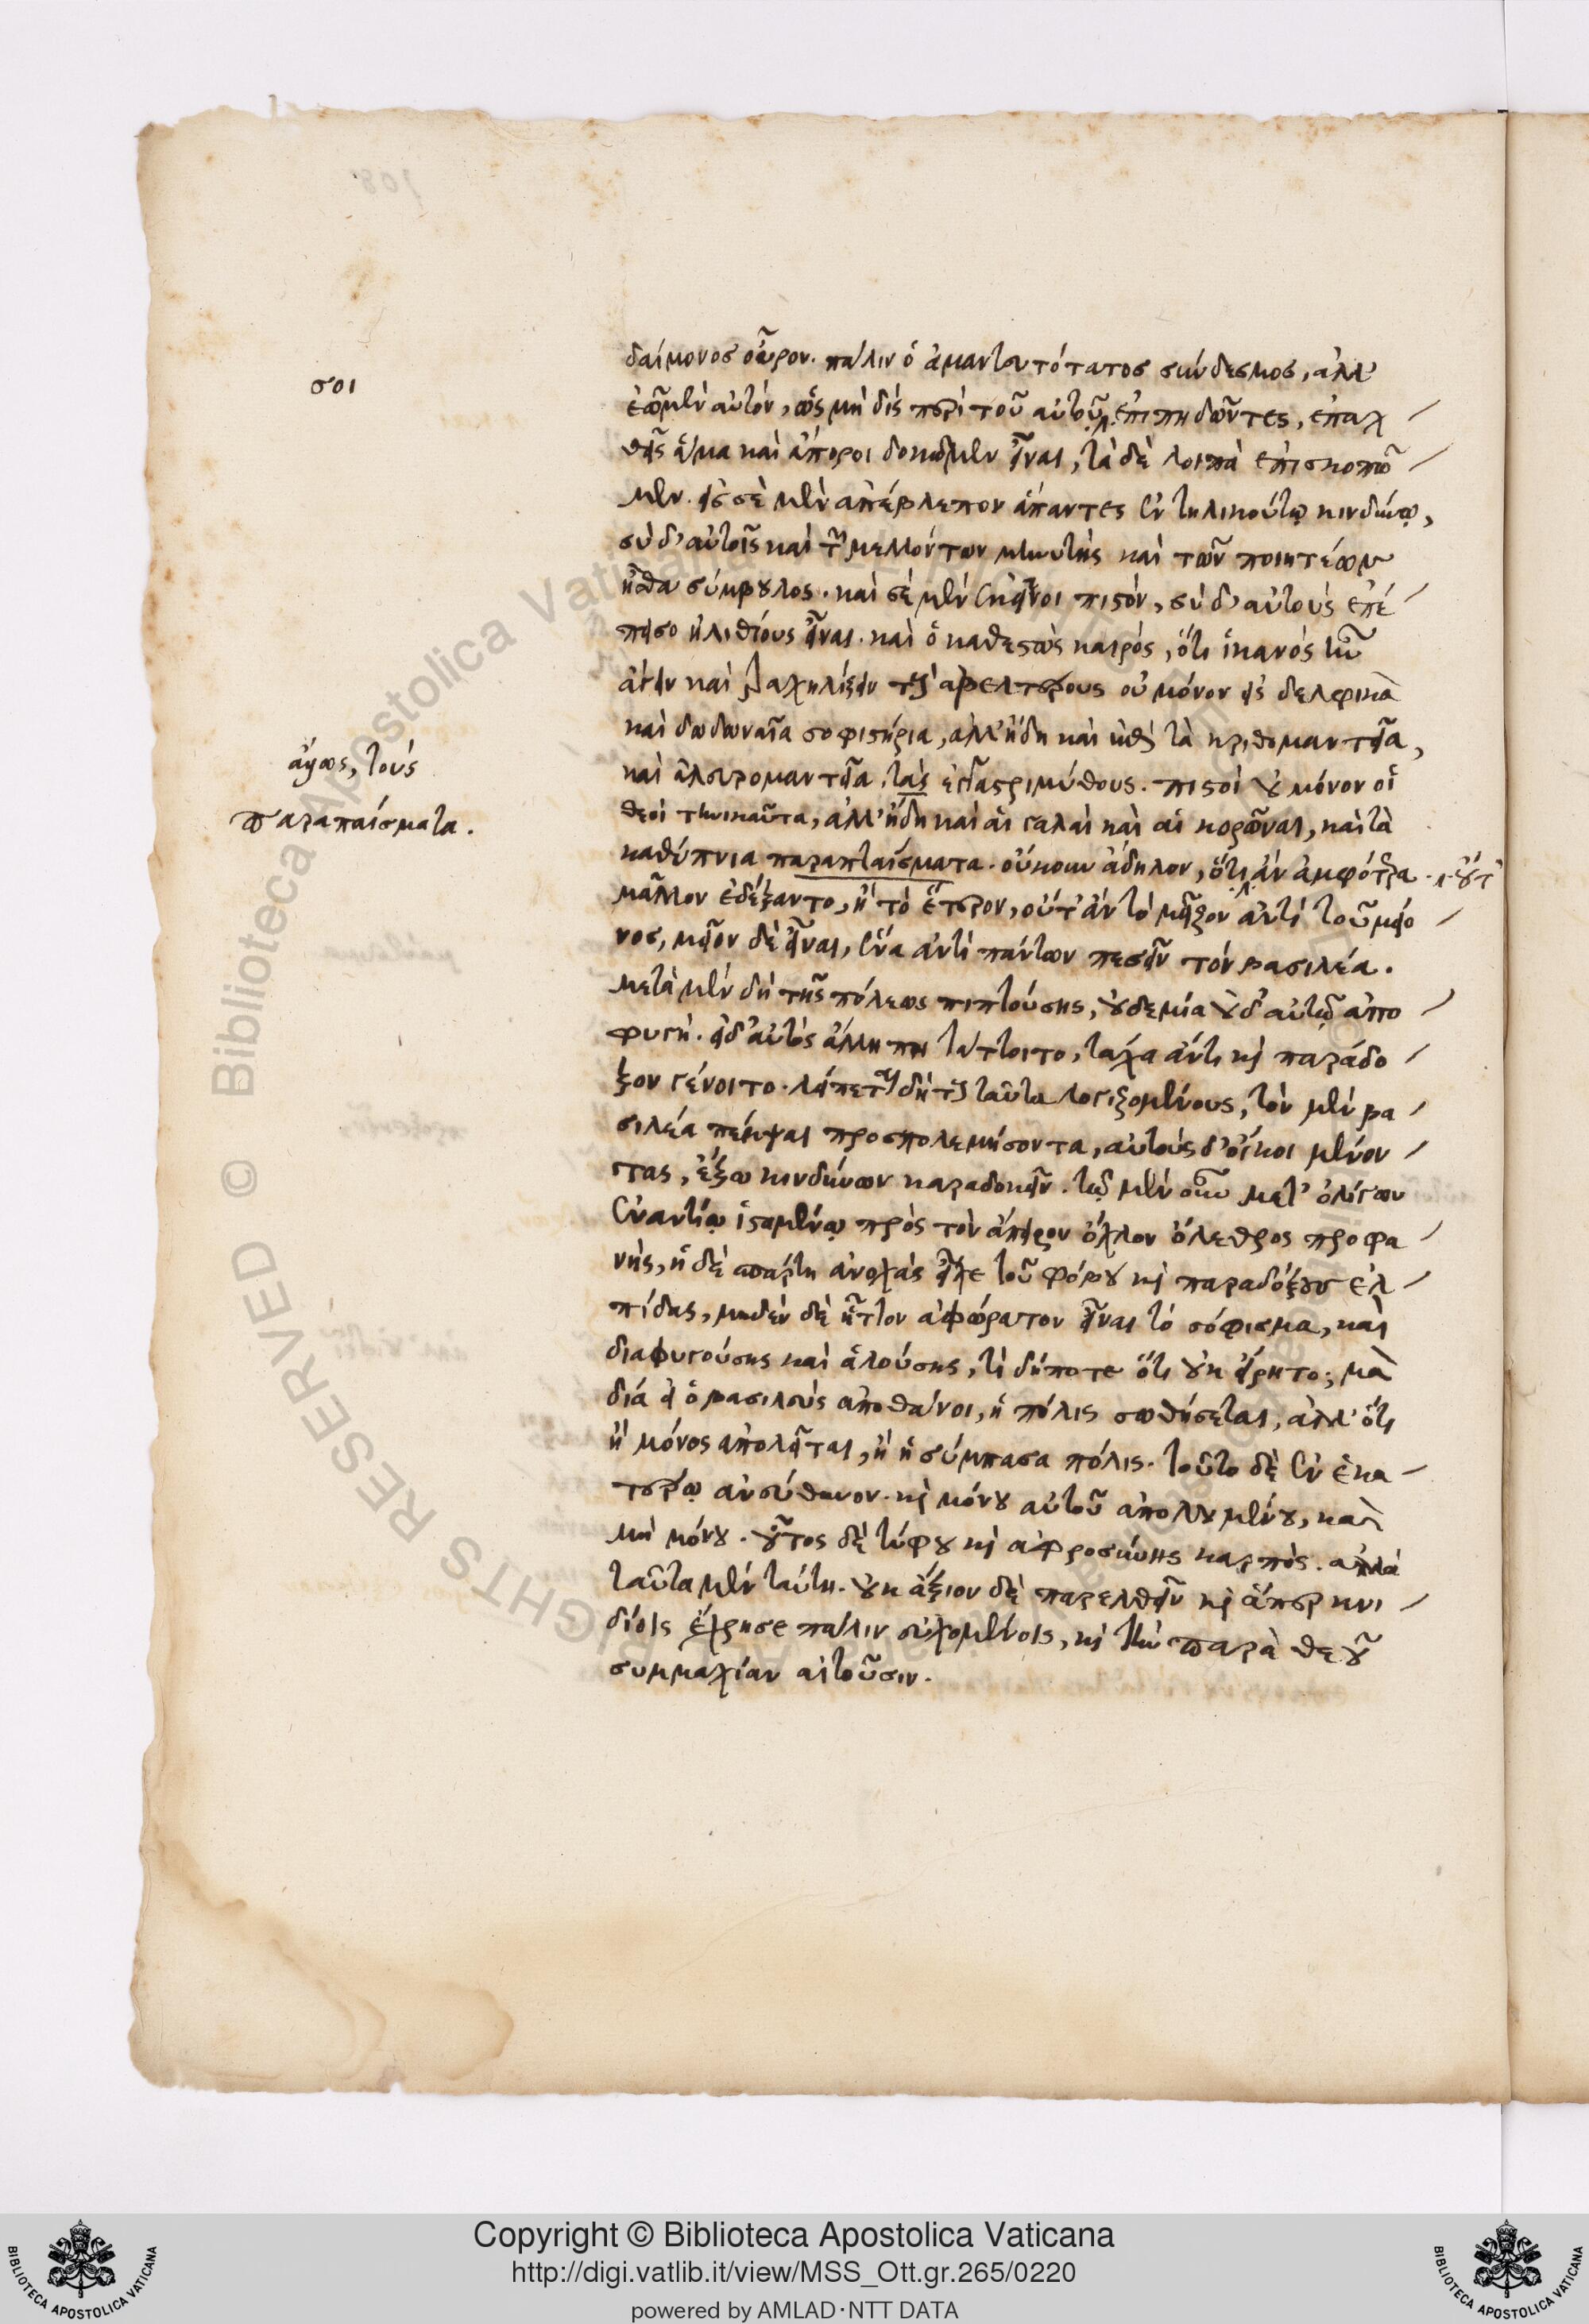 σοι
ἄγος, τοὺς
παραπαίσματα.
δαίμονος οὖρον. πάλιν ὁ ἀμαντευτότατος σύνδεσμος, ἀλλ'
ἐῶμεν αὐτὸν, ὡς μὴ δὶς περὶ τοῦ αὐτοῦ ἐπιπηδῶντες, ἐπαχ
θεῖς ἅμα καὶ ἄποροι δοκῶμεν εἶναι, τὰ δὲ λοιπὰ ἐπισκοπῶ
μεν. εἰς σὲ μὲν ἀπέβλεπον ἅπαντες ἐν τηλικούτῳ κινδύνῳ,
σὺ δ' αὐτοῖς καὶ τῶν μελλόντων μηνυτὴς καὶ τῶν ποιητέων
ἦσθα σύμβουλος. καὶ σὲ μὲν ἐκεῖνοι πιστὸν, σὺ δ' αὐτοὺς ἐπέ
πεισο ἠλιθίους εἶναι. καὶ ὁ καθεστὼς καιρὸς, ὅτι ἱκανὸς ἦν
ἄγειν καὶ τραχηλίζειν τοὺς ἀβελτέρους οὐ μόνον εἰς δελφικὰ
καὶ δωδωναῖα σοφιστήρια, ἀλλ' ἤδη καὶ κατὰ τὰ κριθομαντεῖα,
καὶ ἀλευρομαντεῖα, τὰς ἐγγαστριμύθους. πιστοὶ οὐ μόνον οἱ
θεοὶ τηνικαῦτα, ἀλλ' ἤδη καὶ αἱ γαλαῖ καὶ αἱ κορῶναι, καὶ τὰ
καθύπνια παραπταίσματα. οὔκουν ἄδηλον, ὅτι ἂν ἀμφότερα
μᾶλλον ἐδέξαντο, ἢ τὸ ἕτερον, οὔτ' ἂν τὸ μεῖζον ἀντὶ τοῦ μείο
νος, μεῖον δὲ εἶναι, ἕνα ἀντὶ πάντων πεσεῖν τὸν βασιλέα.
μετὰ μὲν δὴ τῆς πόλεως πιπτούσης, οὐδεμία οὐδ' αὐτῷ ἀπο
φυγή. εἰ δ' αὐτὸς ἄλλῃ πῃ τάττοιτο, τάχα ἄν τι καὶ παράδο
ξον γένοιτο. λείπεται δὴ τοὺς ταῦτα λογιζομένους, τὸν μὲν βα
σιλέα πέμψαι προσπολεμήσοντα, αὐτοὺς δ' οἴκοι μένον
τας, ἔξω κινδύνων καραδοκεῖν. τῷ μὲν οὖν μετ' ὀλίγων
ἐναντίῳ ἱσταμένῳ πρὸς τὸν ἄπειρον ὄχλον ὄλεθρος προφα
νὴς, ἡ δὲ σπάρτη ἀνοχὰς εἶχε τοῦ φόβου καὶ παραδόξου ἐλ
πίδας, μηδὲν δὲ ἧττον ἀφώρατον εἶναι τὸ σόφισμα, καὶ
διαφυγούσης καὶ ἁλούσης, τί δήποτε ὅτι οὐκ εἴρητο; μὰ
δία εἰ ὁ βασιλεὺς ἀποθάνοι, ἡ πόλις σωθήσεται, ἀλλ' ὅτι
ἢ μόνος ἀπολεῖται, ἢ ἡ σύμπασα πόλις. τοῦτο δὲ ἐν ἑκα
τέρῳ ἀνεύθυνον. καὶ μόνου αὐτοῦ ἀπολλυμένου, καὶ
μὴ μόνου. οὗτος δὲ τύφου καὶ ἀφροσύνης καρπὸς. ἀλλὰ
ταῦτα μὲν ταύτῃ. οὐκ ἄξιον δὲ παρελθεῖν καὶ ἅπερ κνι
δίοις ἔχρησε πάλιν εὐχομένοις, καὶ τὴν παρὰ θεοῦ
συμμαχίαν αἰτοῦσιν.
Copyright © Biblioteca Apostolica Vaticana
http://digi.vatlib.it/view/MSS_Ott.gr.265/0220
powered by AMLAD·NTT DATA